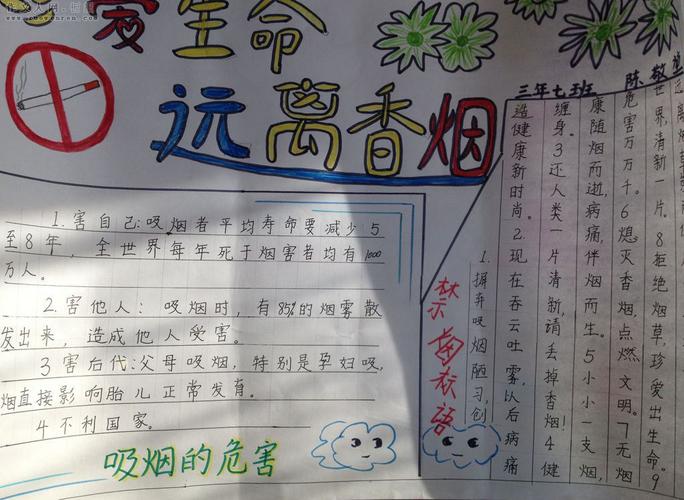 爱生命
远离香烟
三年七班 陈敬
1.害自己:吸烟者平均寿命要减少5
至8年,全世界每年死于烟害者均有1000
万人。
2.害他人:吸烟时,有85%的烟雾散
发出来,造成他人受害。
3害后代:父母吸烟,特别是孕妇吸
烟直接影响胎儿正常发育。
4不利国家。
吸烟的危害
禁烟标语
1.摒弃吸烟陋习,创
造健康新时尚。2.现在吞云吐雾,以后病痛
缠身。3还人类一片清新,请丢掉香烟!4健
康随烟而逝,病痛伴烟而生。5小小一支烟,
危害万万千。6熄灭香烟,点燃文明。7无烟
世界,清新一片。8拒绝烟草,珍爱出生命。9